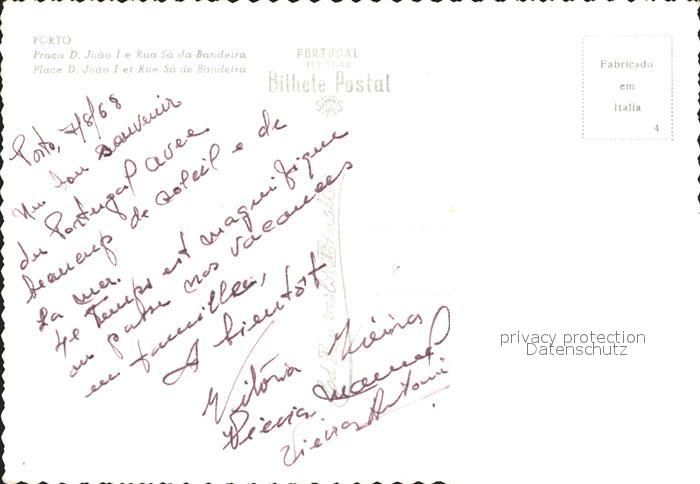 PORTO
Praça D. João I e Rua Sá da Bandeira
Place D. João I et Rue Sá de Bandeira
PORTUGAL
TURÍSTICO
Bilhete Postal
Fabricado
em
Italia
4
Porto, 7/8/68
Un bon souvenir
du Portugal avec
beaucoup de soleil e de
La mer.
Le temps est magnifique
on passe nos vacances
en familles,
A bientôt
Vitória Vieira
Vieira Manuel
Vieira Antoni
privacy protection
Datenschutz